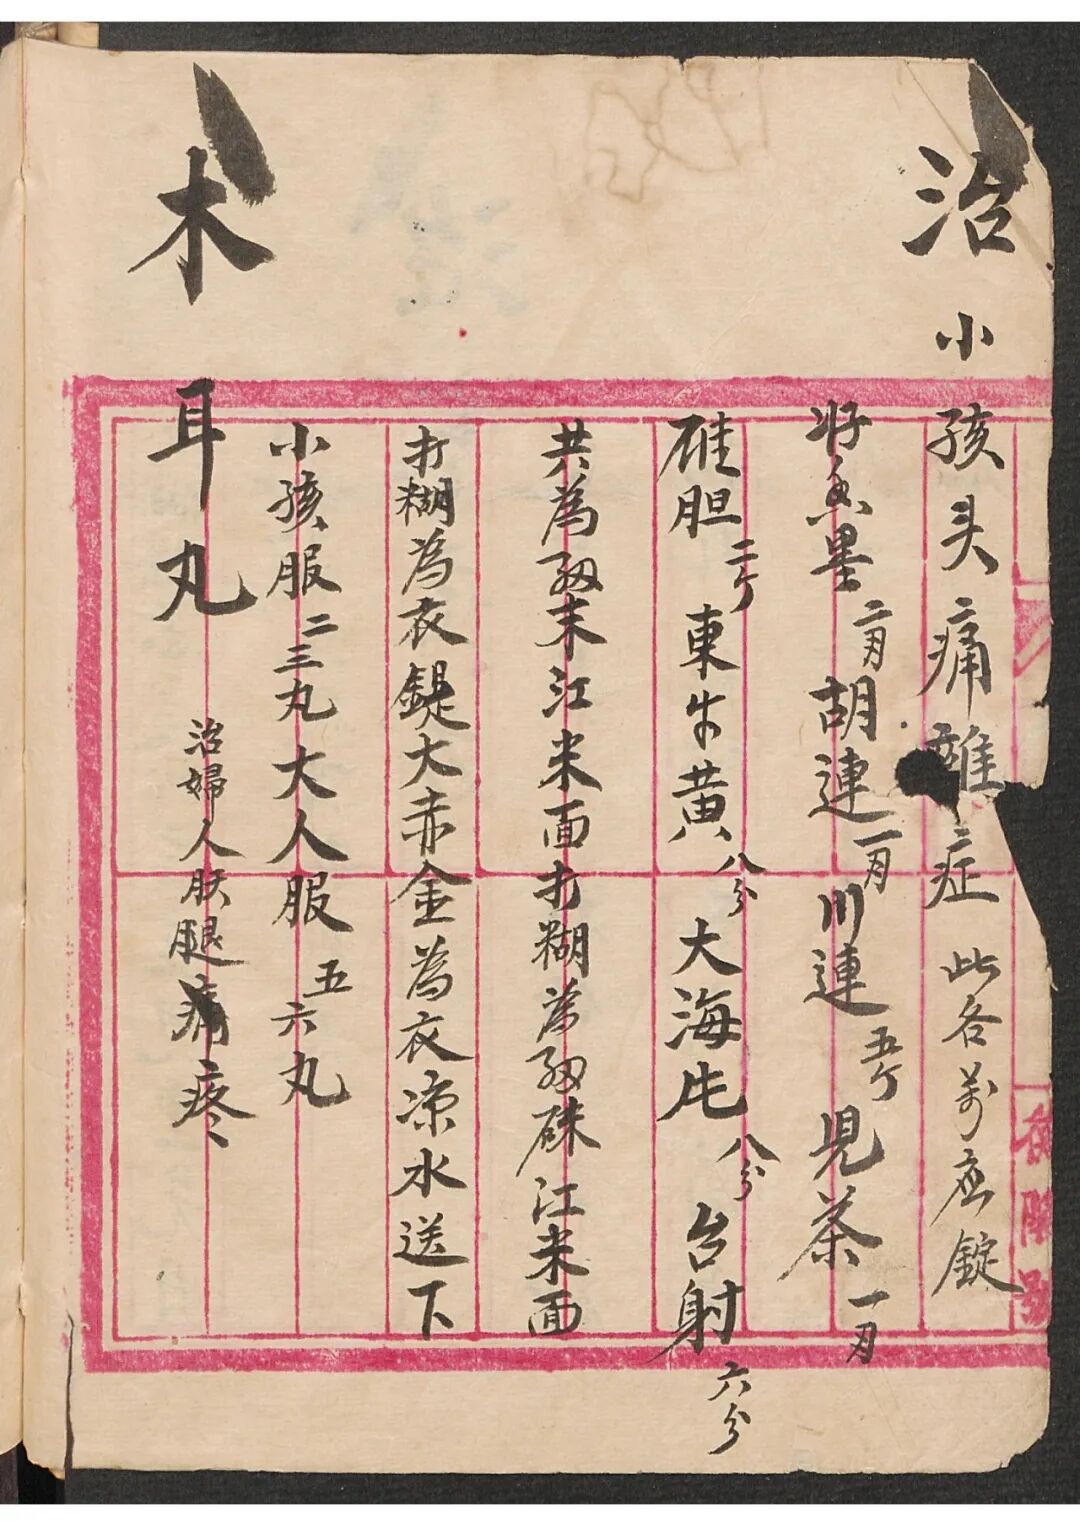 治小孩头痛雜症 此名萬应錠
好香墨二月胡連一月川連五个児茶一月
硅胆二个東牛黄八分大海片八分台射六分
共為細末江米面打糊為細硃江米面
打糊為衣錠大赤金為衣凉水送下
小孩服二三丸大人服五六丸
木耳丸 治婦人肤腿痛疼